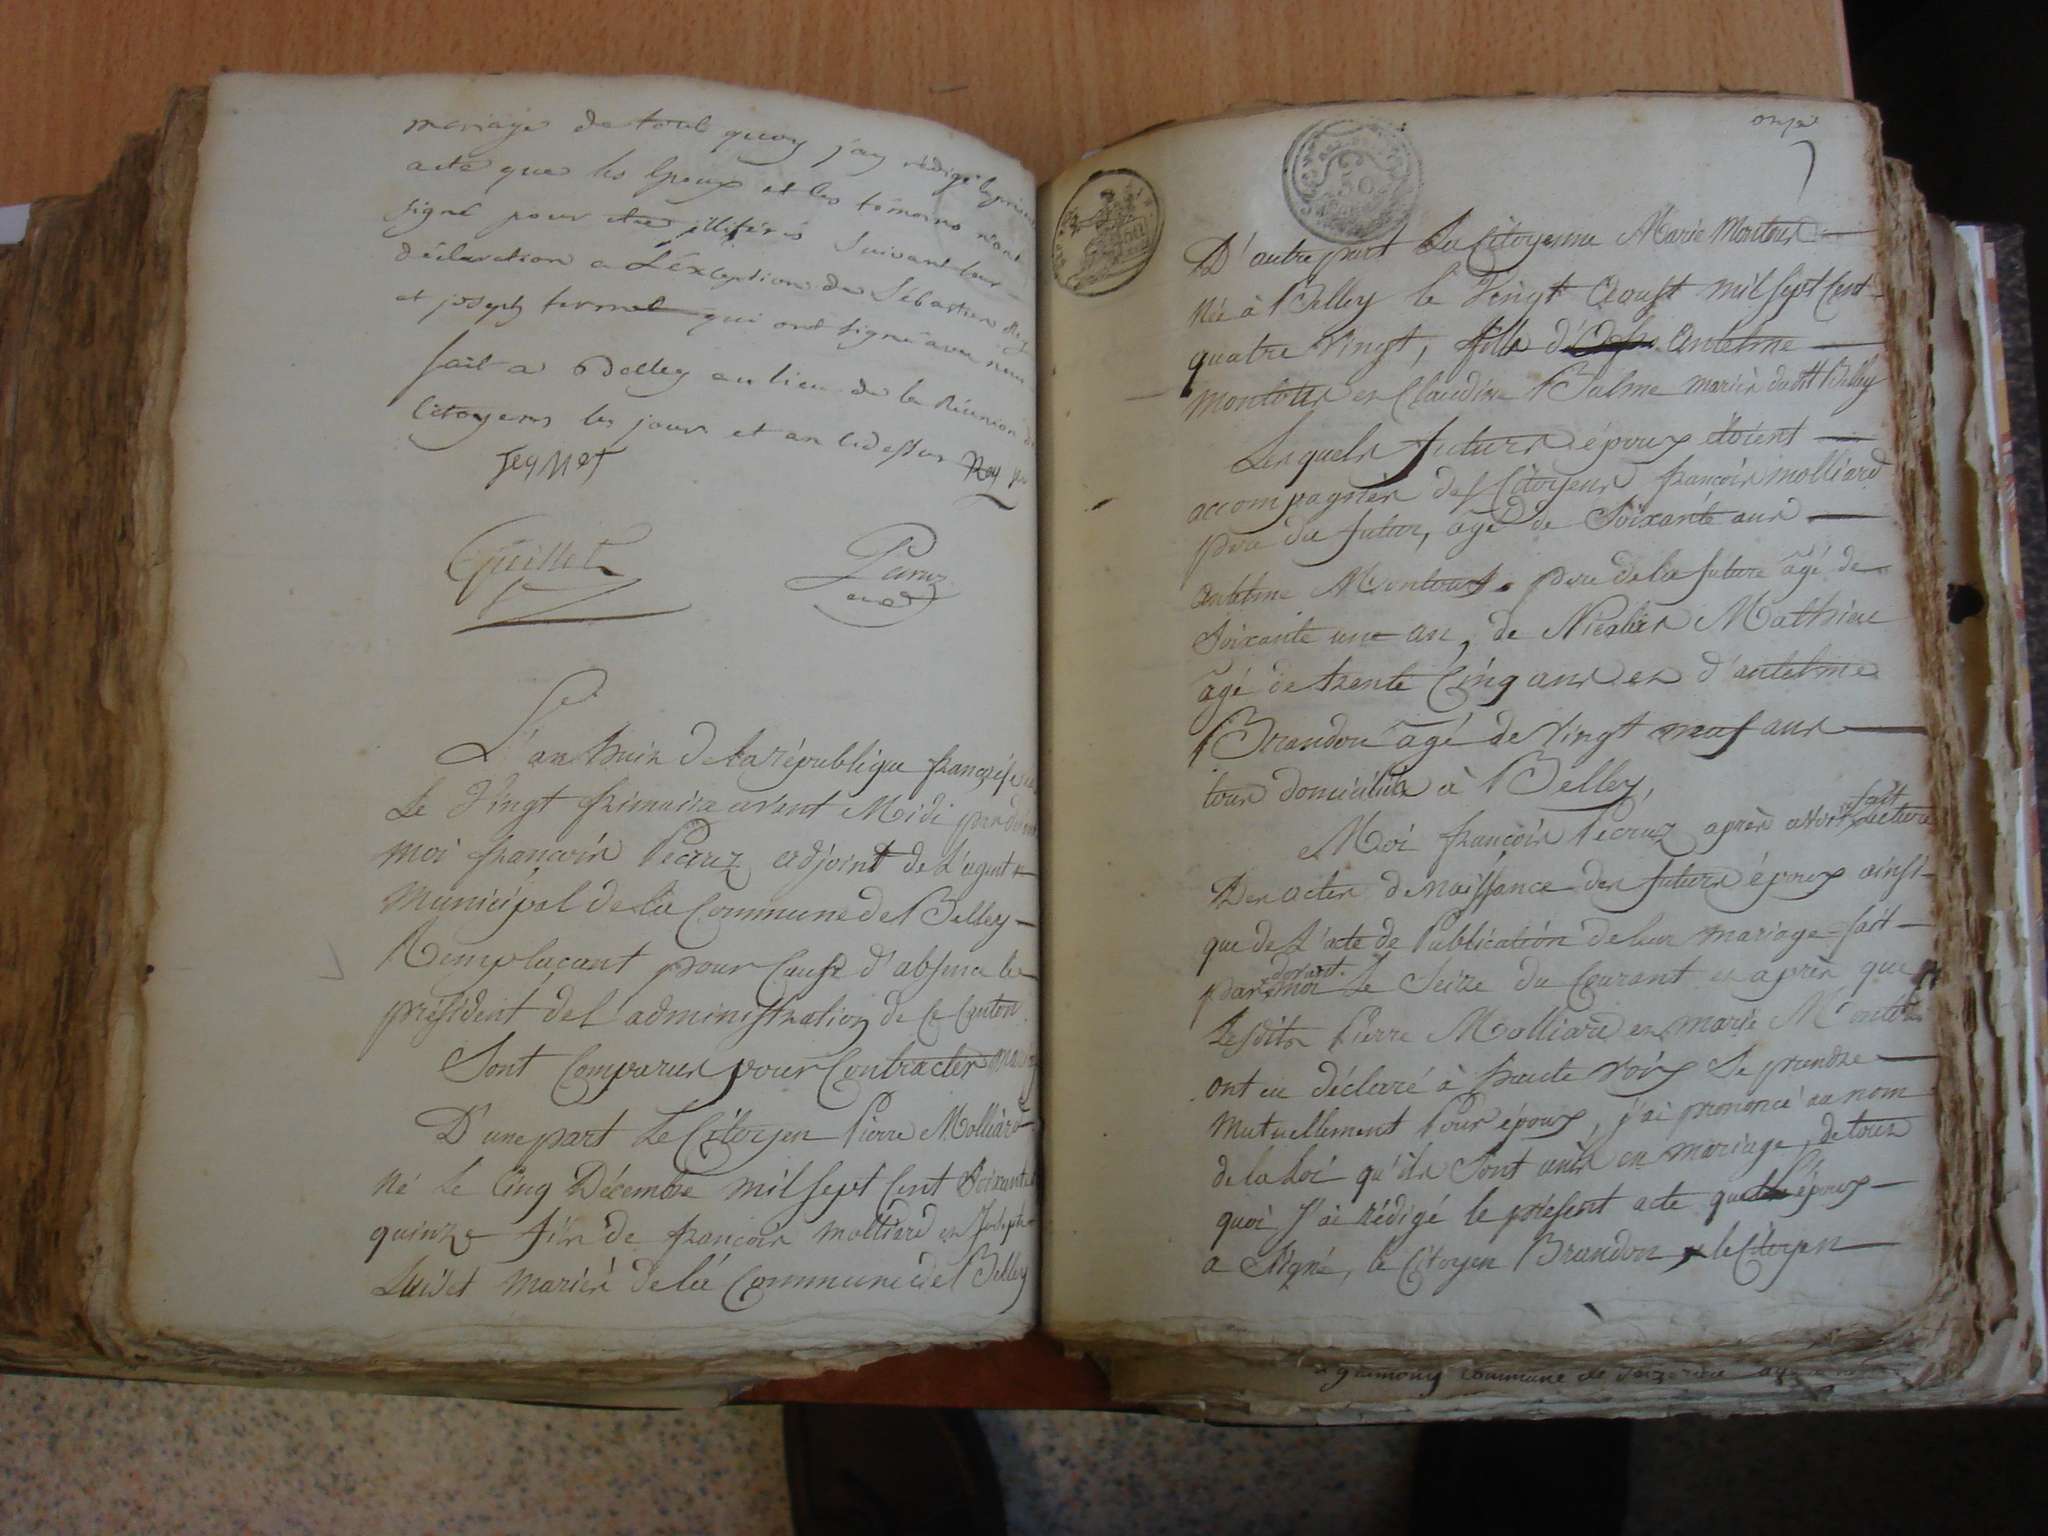 mariage de tout quoy j'ay rédigé le présent
acte que les Epoux et les témoins n'ont
signé pour etre illiterés suivant leur
déclaration a L'exception de Sébastien Rey
et joseph fermet qui ont signé avec nous
fait a Belley au lieu de la Réunion des
Citoyens les jour et an cidessus Rey
Guillot Peruz
L'an huit de la république française
Le Vingt frimaire avant Midi pardevant
moi françois Pecruz adjoint de L'agent
Municipal de la Commune de Belley
Remplacant pour Cause d'absence le
président de l'administration de ce Canton
Sont Comparus pour Contracter mariage
D'une part Le Citoyen Pierre Molliard
Né Le Cinq Décembre mil sept Cent Soixante
quinze fils de françois molliard et Josephte
Luiset mariés de la Commune de Belley
onze
50
D'autre part La Citoyenne Marie Montoux
Née à Belley le Vingt Aoust mil sept Cent
quatre Vingt, fille d' Antelme
montoux et Claudine Balme mariés dudit Belley
Lesquels futurs époux étoient
accompagnés des Citoyens françois molliard
père du futur, agé de Soixante ans
antelme Montoux père de la future âgé de
Soixante un an, de Nicolas Mathieu
âgé de trente Cinq ans et d'antelme
Brandon âgé de Vingt neuf ans
tous domiciliés à Belley,
Moi françois Pecruz après avoir fait Lecture
Des actes de Naissance des futurs époux ainsi
que de L'acte de Publication de leur mariage fait
par devant moi Le Seize du Courant et après que
Lesdits Pierre Molliard et marie Montoux
ont eu déclaré à haute voix Se prendre
Mutuellement Pour époux, j'ai prononcé au nom
de la Loi qu'ils Sont unis en mariage, de tout
quoi J'ai rédigé le présent acte que L'époux
a Signé, le Citoyen Brandon, le Citoyen
commune de